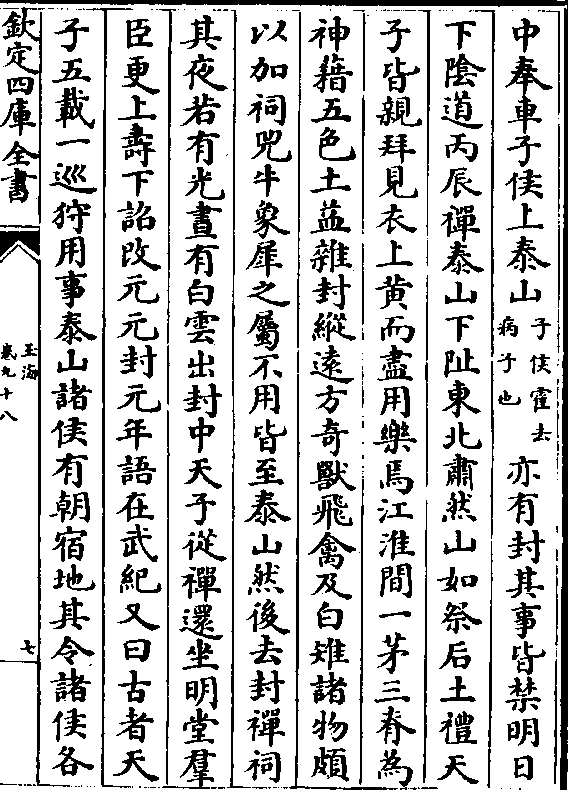 中奉車子侯上泰山子侯霍去病子也亦有封其事皆禁明日
下陰道丙辰禪泰山下阯東北肅然山如祭后土禮天
子皆親拜見衣上黃而盡用樂焉江淮間一茅三脊為
神藉五色土益雜封縱遠方奇獸飛禽及白雉諸物頗
以加祠兕牛象犀之屬不用皆至泰山然後去封禪祠
其夜若有光晝有白雲出封中天子從禪還坐明堂羣
臣更上壽下詔改元元封元年語在武紀又曰古者天
子五載一巡狩用事泰山諸侯有朝宿地其令諸侯各
欽定四庫全書
玉海
卷九十八
七